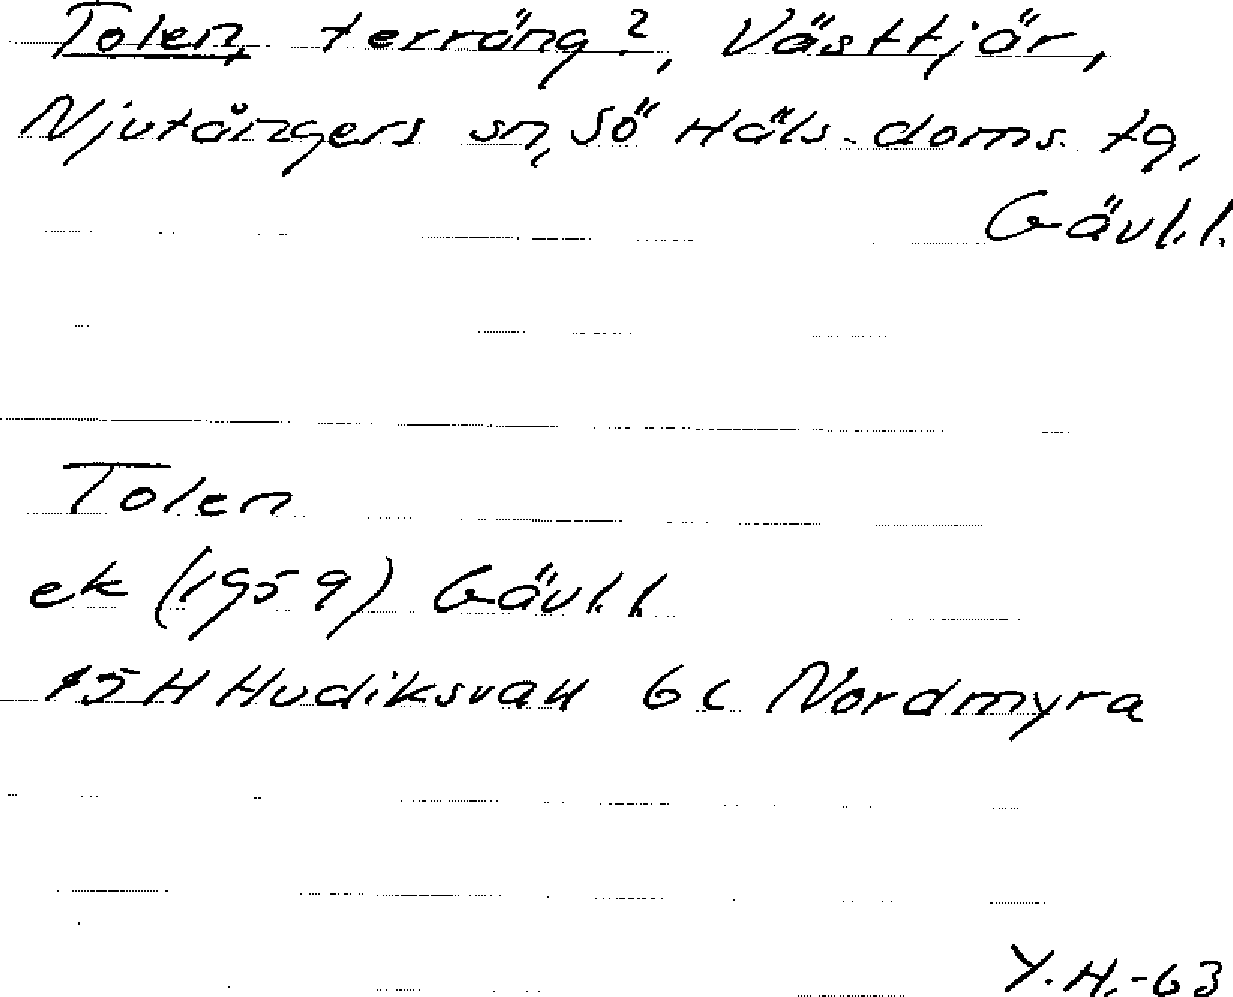 Tolen, terräng?, Västtjär,
Njutångers sn, Sö Häls. doms. tg,
Gävl.l.
Tolen
ek (1959) Gävl.l.
15H Hudiksvall 6c Nordmyra
Y.H.-63